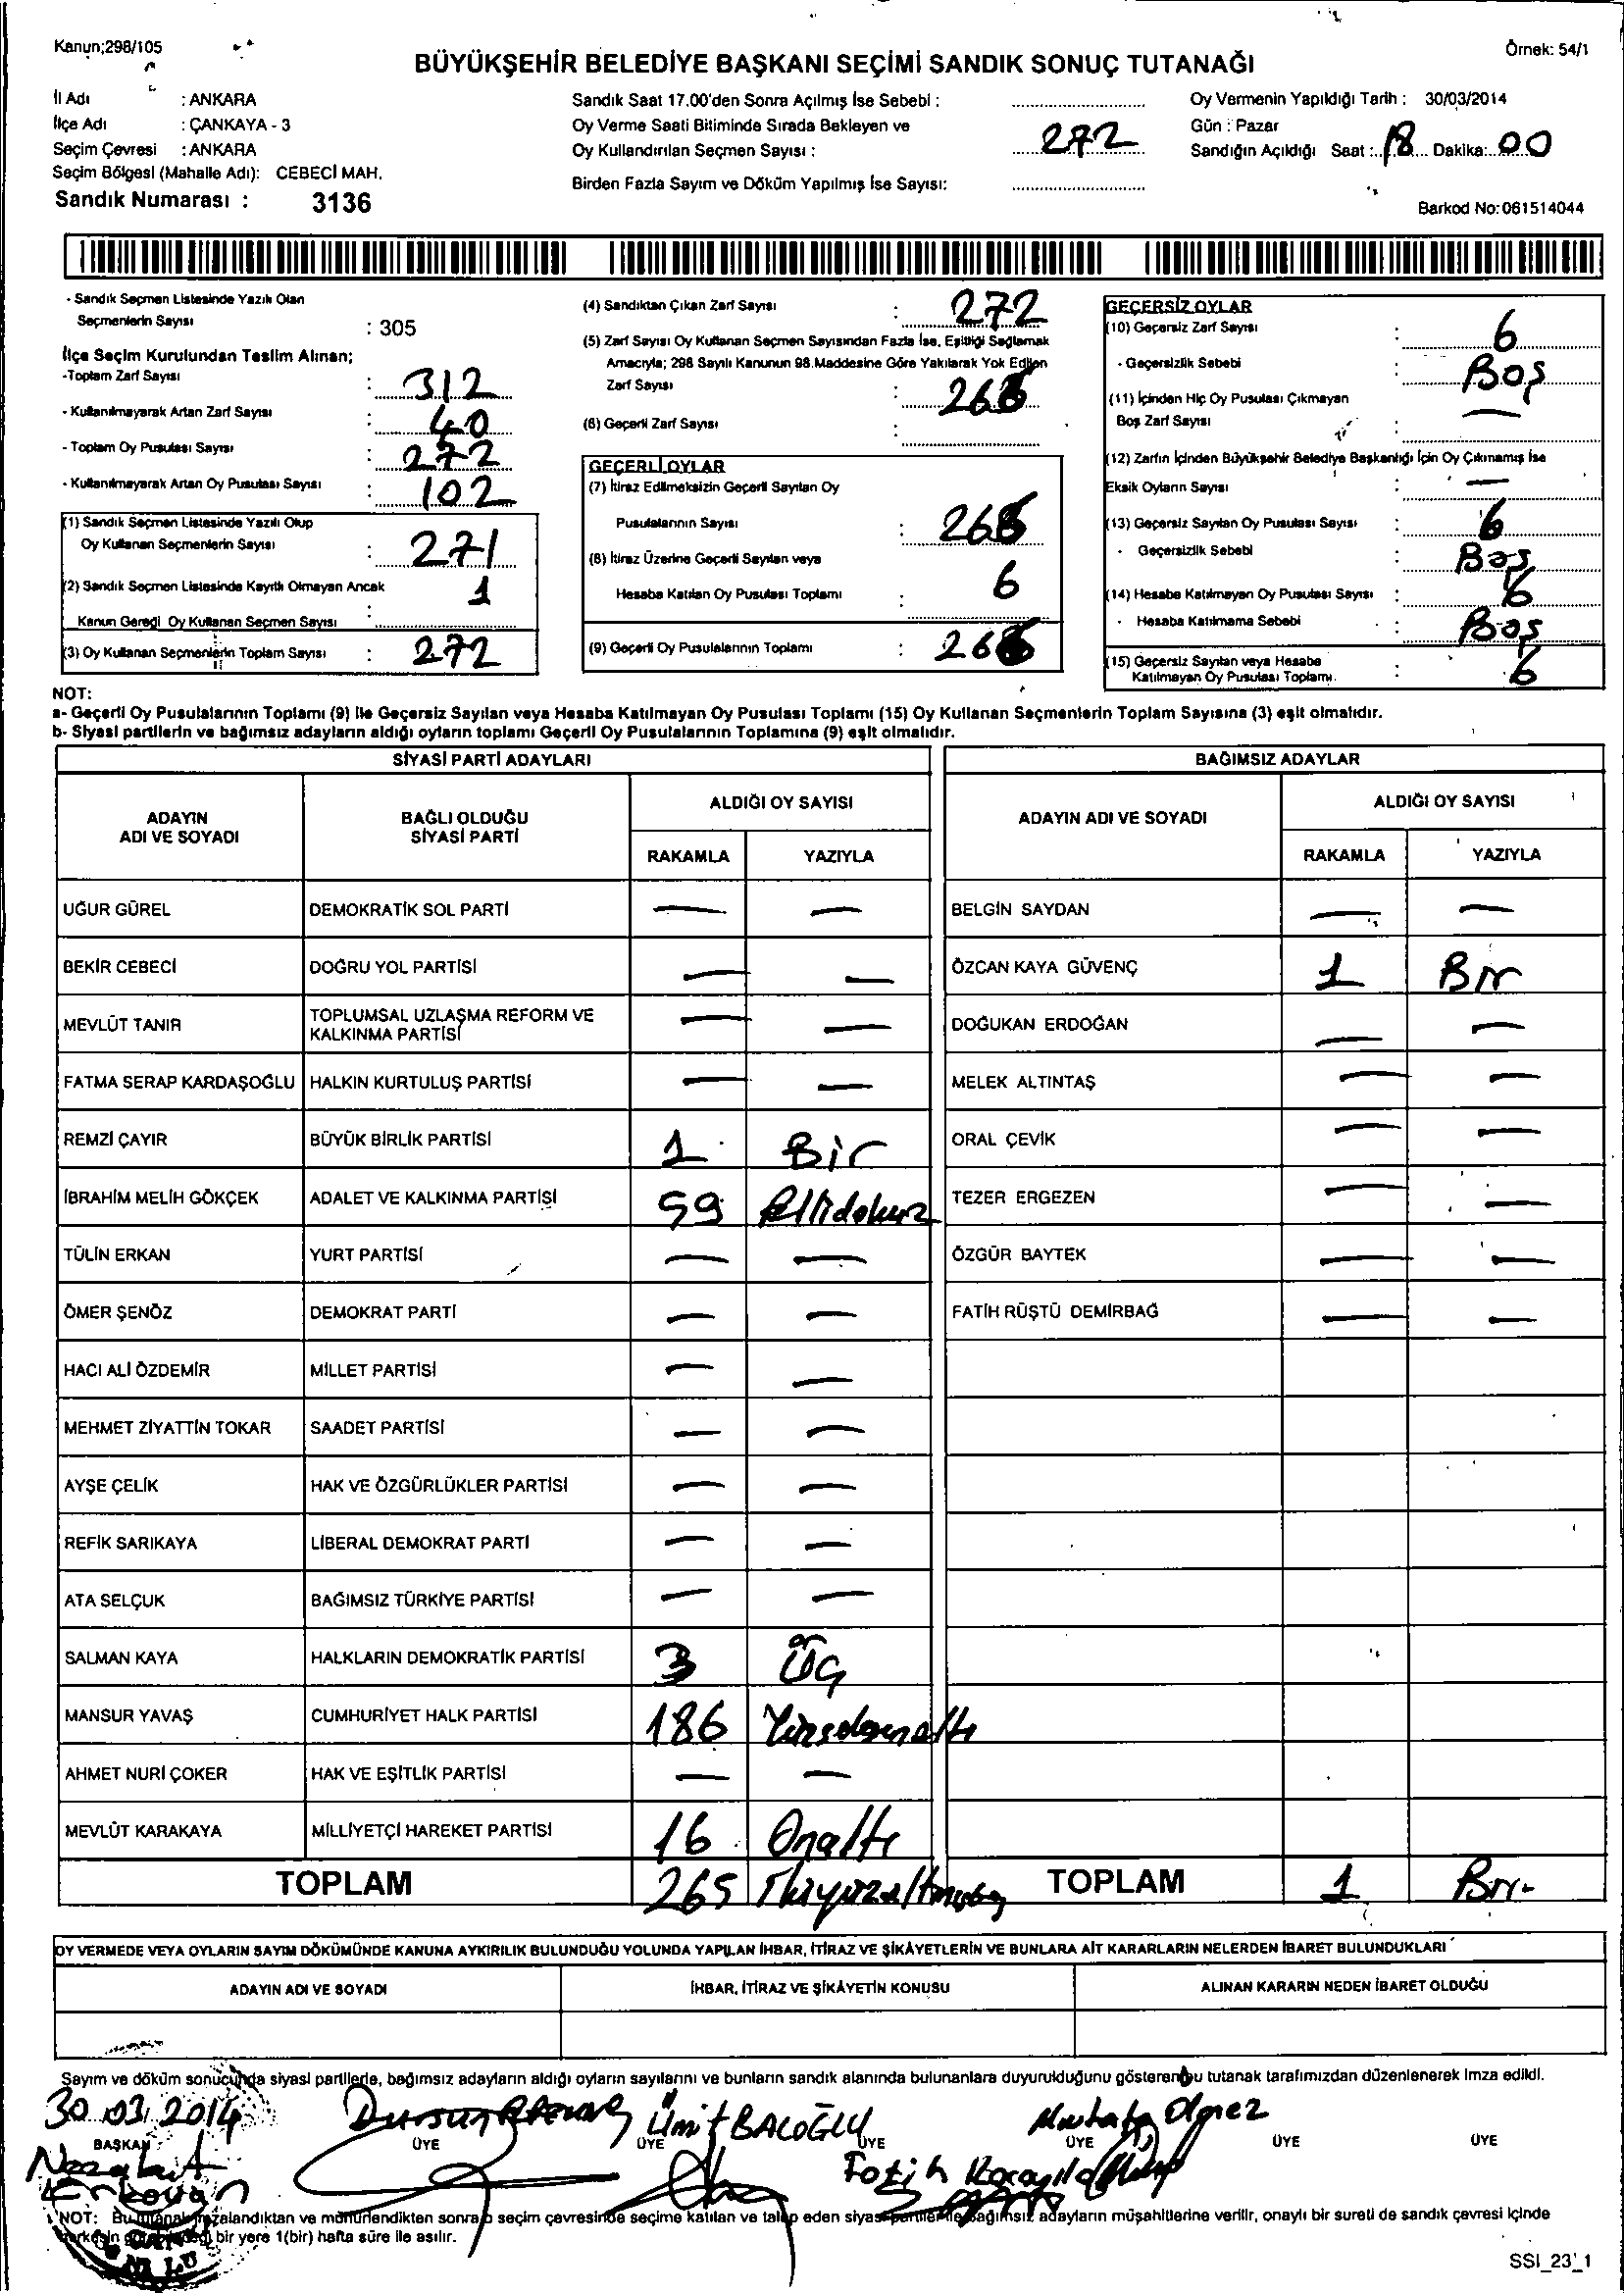 Kanun;298/105
Örnek: 54/1
BÜYÜKŞEHİR BELEDİYE BAŞKANI SEÇİMİ SANDIK SONUÇ TUTANAĞI
İl Adı : ANKARA
İlçe Adı : ÇANKAYA - 3
Seçim Çevresi : ANKARA
Seçim Bölgesi (Mahalle Adı): CEBECİ MAH.
Sandık Numarası : 3136
Sandık Saat 17.00'den Sonra Açılmış İse Sebebi :
Oy Verme Saati Bitiminde Sırada Bekleyen ve
Oy Kullandırılan Seçmen Sayısı : 272
Birden Fazla Sayım ve Döküm Yapılmış İse Sayısı:
Oy Vermenin Yapıldığı Tarih : 30/03/2014
Gün : Pazar
Sandığın Açıldığı Saat : 18 Dakika: 00
Barkod No:061514044
- Sandık Seçmen Listesinde Yazılı Olan
Seçmenlerin Sayısı : 305
İlçe Seçim Kurulundan Teslim Alınan;
-Toplam Zarf Sayısı : 312
- Kullanılmayarak Artan Zarf Sayısı : 40
- Toplam Oy Pusulası Sayısı : 272
- Kullanılmayarak Artan Oy Pusulası Sayısı : 102
(1) Sandık Seçmen Listesinde Yazılı Olup
Oy Kullanan Seçmenlerin Sayısı : 271
(2) Sandık Seçmen Listesinde Kayıtlı Olmayan Ancak
Kanun Gereği Oy Kullanan Seçmen Sayısı : 1
(3) Oy Kullanan Seçmenlerin Toplam Sayısı : 272
(4) Sandıktan Çıkan Zarf Sayısı : 272
(5) Zarf Sayısı Oy Kullanan Seçmen Sayısından Fazla İse, Eşitliği Sağlamak
Amacıyla; 298 Sayılı Kanunun 98.Maddesine Göre Yakılarak Yok Edilen
Zarf Sayısı : 266
(6) Geçerli Zarf Sayısı :
GEÇERLİ OYLAR
(7) İtiraz Edilmeksizin Geçerli Sayılan Oy
Pusulalarının Sayısı : 266
(8) İtiraz Üzerine Geçerli Sayılan veya
Hesaba Katılan Oy Pusulası Toplamı : 6
(9) Geçerli Oy Pusulalarının Toplamı : 266
GEÇERSİZ OYLAR
(10) Geçersiz Zarf Sayısı : 6
- Geçersizlik Sebebi : Boş
(11) İçinden Hiç Oy Pusulası Çıkmayan
Boş Zarf Sayısı : —
(12) Zarfın İçinden Büyükşehir Belediye Başkanlığı İçin Oy Çıkmamış İse
Eksik Oyların Sayısı : —
(13) Geçersiz Sayılan Oy Pusulası Sayısı : 6
- Geçersizlik Sebebi : Boş
(14) Hesaba Katılmayan Oy Pusulası Sayısı : 6
- Hesaba Katılmama Sebebi : Boş
(15) Geçersiz Sayılan veya Hesaba
Katılmayan Oy Pusulası Toplamı : 6
NOT:
a- Geçerli Oy Pusulalarının Toplamı (9) ile Geçersiz Sayılan veya Hesaba Katılmayan Oy Pusulası Toplamı (15) Oy Kullanan Seçmenlerin Toplam Sayısına (3) eşit olmalıdır.
b- Siyasi partilerin ve bağımsız adayların aldığı oyların toplamı Geçerli Oy Pusulalarının Toplamına (9) eşit olmalıdır.
SİYASİ PARTİ ADAYLARI
ADAYIN ADI VE SOYADI BAĞLI OLDUĞU SİYASİ PARTİ ALDIĞI OY SAYISI
RAKAMLA YAZIYLA
UĞUR GÜREL DEMOKRATİK SOL PARTİ — —
BEKİR CEBECİ DOĞRU YOL PARTİSİ — —
MEVLÜT TANIR TOPLUMSAL UZLAŞMA REFORM VE KALKINMA PARTİSİ — —
FATMA SERAP KARDAŞOĞLU HALKIN KURTULUŞ PARTİSİ — —
REMZİ ÇAYIR BÜYÜK BİRLİK PARTİSİ 1 Bir
İBRAHİM MELİH GÖKÇEK ADALET VE KALKINMA PARTİSİ 59 Ellidokuz
TÜLİN ERKAN YURT PARTİSİ — —
ÖMER ŞENÖZ DEMOKRAT PARTİ — —
HACI ALİ ÖZDEMİR MİLLET PARTİSİ — —
MEHMET ZİYATTİN TOKAR SAADET PARTİSİ — —
AYŞE ÇELİK HAK VE ÖZGÜRLÜKLER PARTİSİ — —
REFİK SARIKAYA LİBERAL DEMOKRAT PARTİ — —
ATA SELÇUK BAĞIMSIZ TÜRKİYE PARTİSİ — —
SALMAN KAYA HALKLARIN DEMOKRATİK PARTİSİ 3 Üç
MANSUR YAVAŞ CUMHURİYET HALK PARTİSİ 186 Yüzseksenaltı
AHMET NURİ ÇOKER HAK VE EŞİTLİK PARTİSİ — —
MEVLÜT KARAKAYA MİLLİYETÇİ HAREKET PARTİSİ 16 Onaltı
TOPLAM 265 İkiyüzaltmışbeş
BAĞIMSIZ ADAYLAR
ADAYIN ADI VE SOYADI ALDIĞI OY SAYISI
RAKAMLA YAZIYLA
BELGİN SAYDAN — —
ÖZCAN KAYA GÜVENÇ 1 Bir
DOĞUKAN ERDOĞAN — —
MELEK ALTINTAŞ — —
ORAL ÇEVİK — —
TEZER ERGEZEN — —
ÖZGÜR BAYTEK — —
FATİH RÜŞTÜ DEMİRBAĞ — —
TOPLAM 1 Bir
OY VERMEDE VEYA OYLARIN SAYIM DÖKÜMÜNDE KANUNA AYKIRILIK BULUNDUĞU YOLUNDA YAPILAN İHBAR, İTİRAZ VE ŞİKÂYETLERİN VE BUNLARA AİT KARARLARIN NELERDEN İBARET BULUNDUKLARI
ADAYIN ADI VE SOYADI İHBAR, İTİRAZ VE ŞİKÂYETİN KONUSU ALINAN KARARIN NEDEN İBARET OLDUĞU
Sayım ve döküm sonucunda siyasi partilerle, bağımsız adayların aldığı oyların sayılarını ve bunların sandık alanında bulunanlara duyurulduğunu gösteren bu tutanak tarafımızdan düzenlenerek imza edildi.
30 03 2014 Dursun Ümit BALOĞLU Mustafa
BAŞKAN ÜYE ÜYE ÜYE ÜYE ÜYE ÜYE
Fatih
NOT: Bu tutanak imzalandıktan ve mühürlendikten sonra o seçim çevresinde seçime katılan ve talep eden siyasi partiler ile bağımsız adayların müşahitlerine verilir, onaylı bir sureti de sandık çevresi içinde
herkesin görebileceği bir yere 1(bir) hafta süre ile asılır.
SSI_23_1